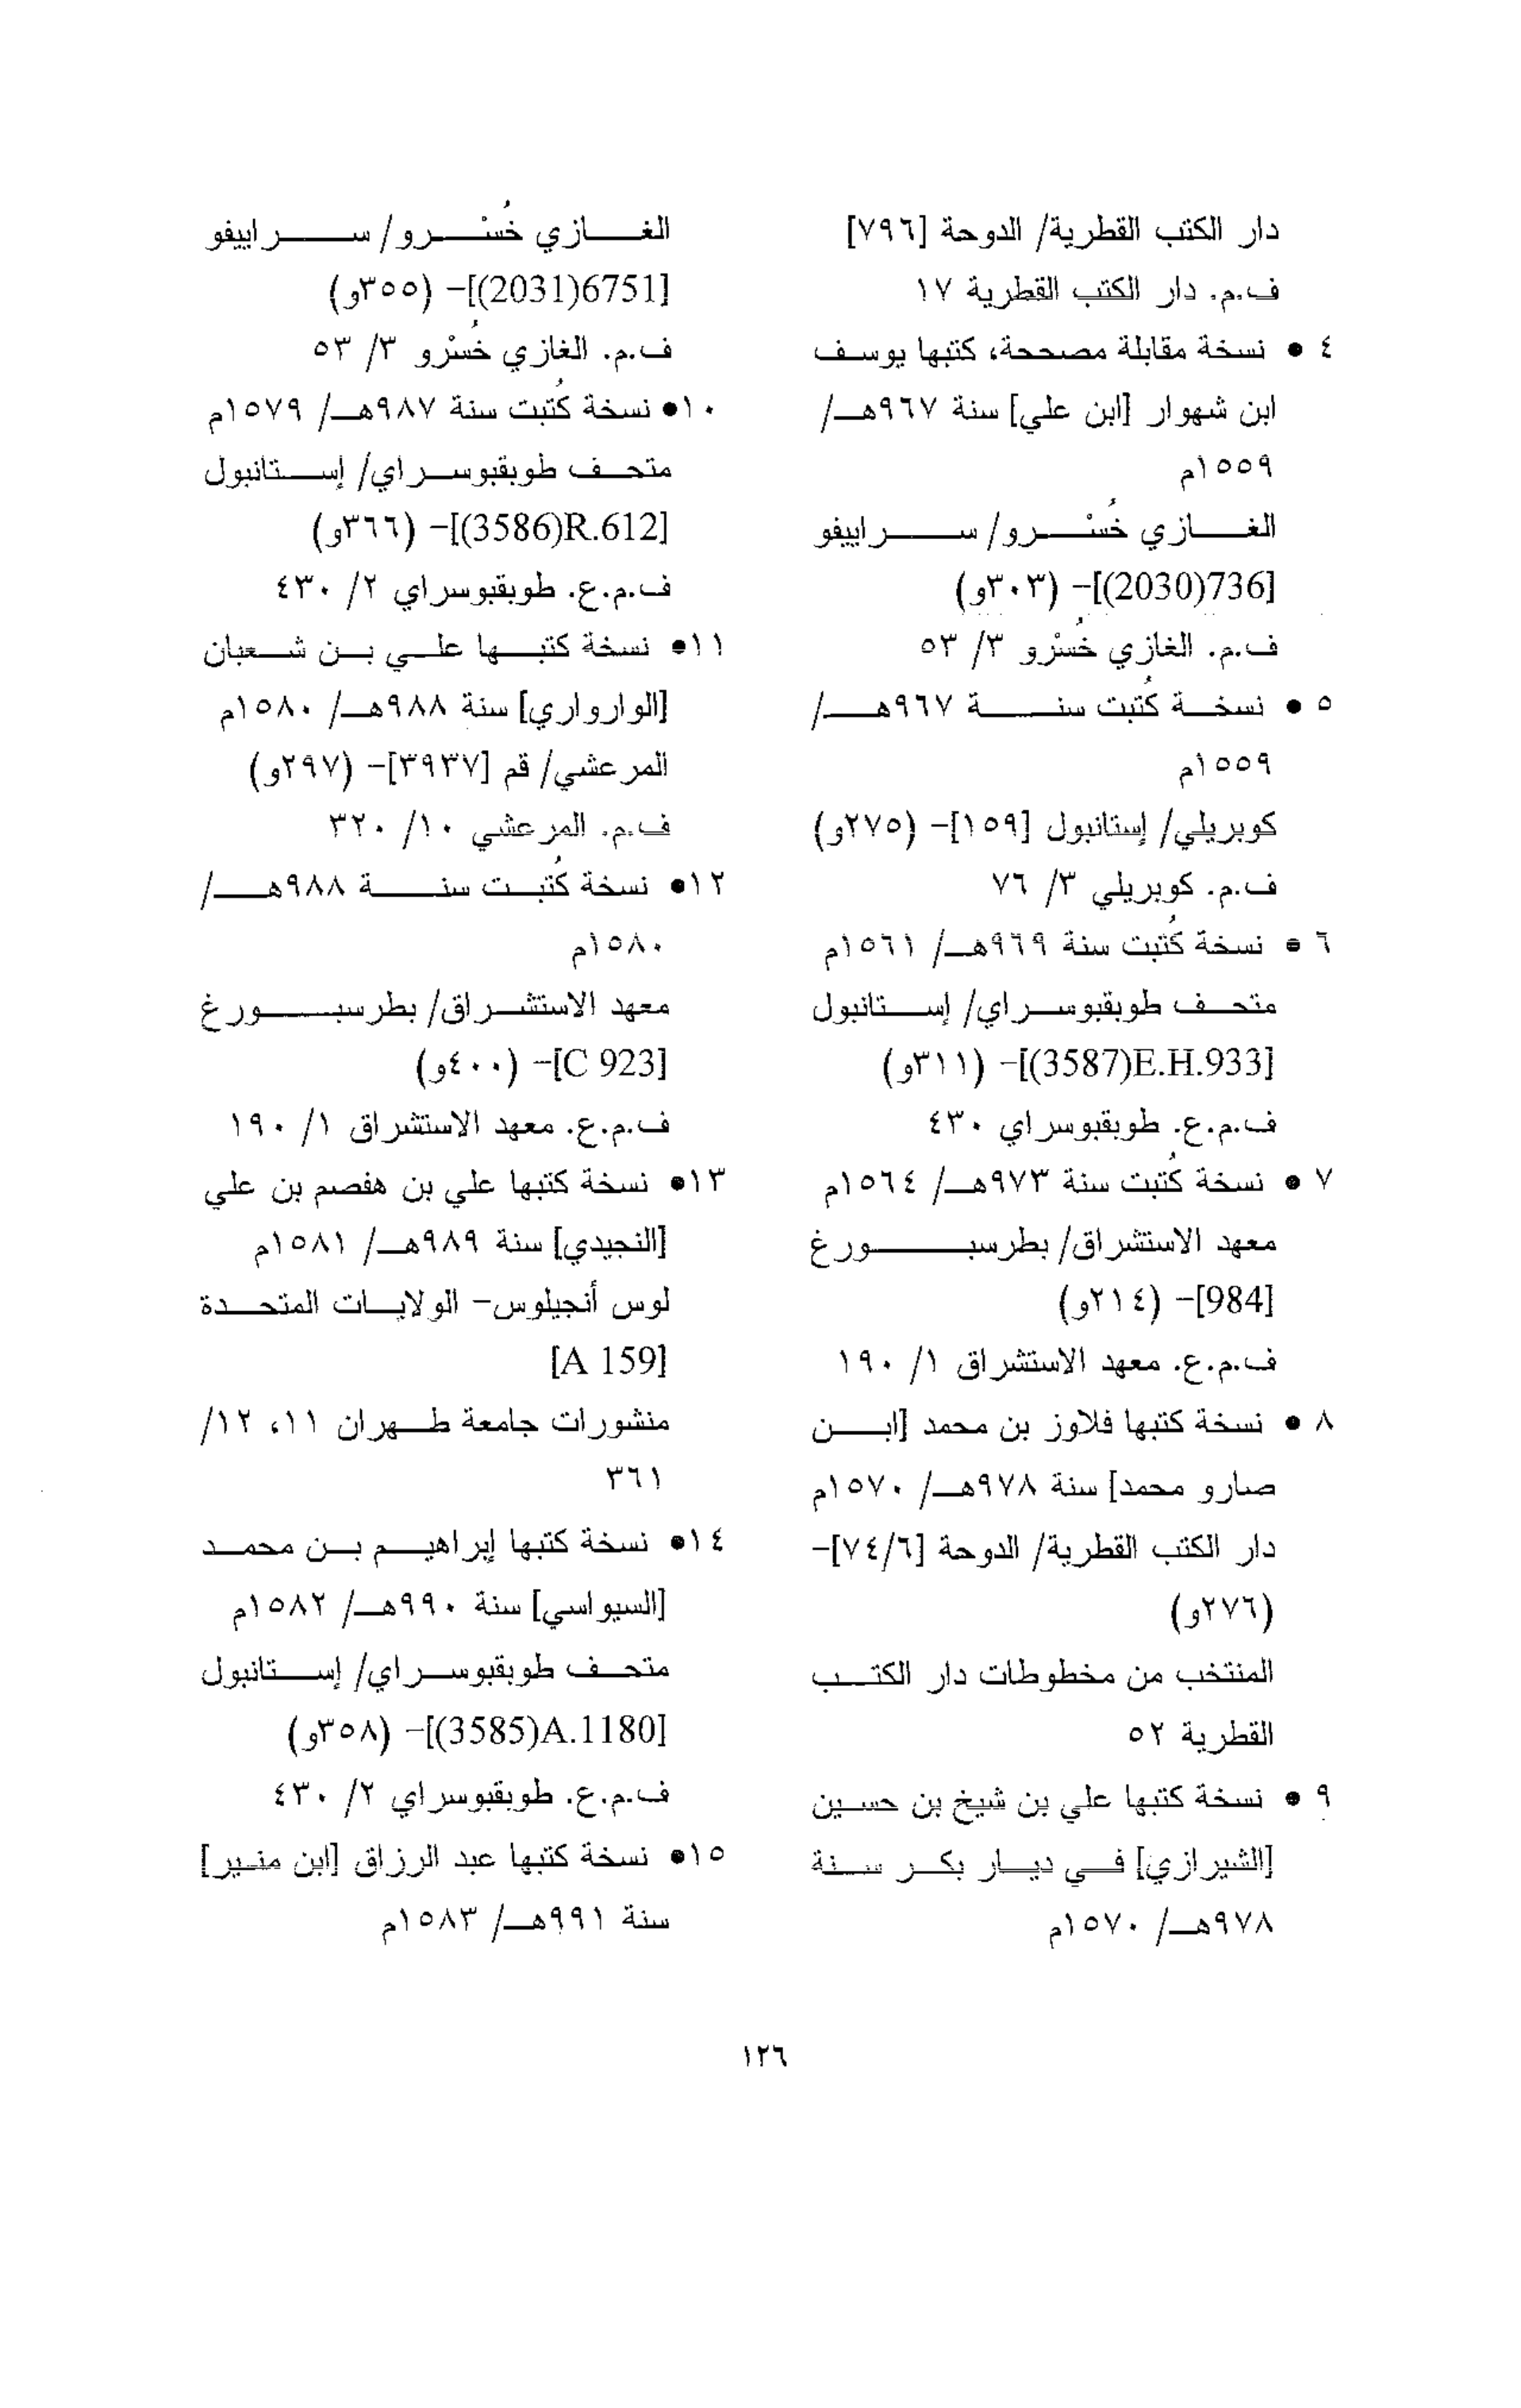 دار الكتب القطرية/ الدوحة [٧٩٦]
ف.م. دار الكتب القطرية ١٧
٤ • نسخة مقابلة مصححة، كتبها يوسف
ابن شهوار [ابن علي] سنة ٩٦٧هـ/
١٥٥٩م
الغازي خُسْرو/ سراييفو
[736(2030)]- (٣٠٣و)
ف.م. الغازي خُسْرو ٣/ ٥٣
٥ • نسخة كُتبت سنة ٩٦٧هـ/
١٥٥٩م
كوبريلي/ إستانبول [١٥٩]- (٢٧٥و)
ف.م. كوبريلي ٣/ ٧٦
٦ • نسخة كُتبت سنة ٩٦٩هـ/ ١٥٦١م
متحف طوبقبوسراي/ إستانبول
[E.H.933(3587)]- (٣١١و)
ف.م.ع. طوبقبوسراي ٤٣٠
٧ • نسخة كُتبت سنة ٩٧٣هـ/ ١٥٦٤م
معهد الاستشراق/ بطرسبورغ
[984]- (٢١٤و)
ف.م.ع. معهد الاستشراق ١/ ١٩٠
٨ • نسخة كتبها فلاوز بن محمد [ابن
صارو محمد] سنة ٩٧٨هـ/ ١٥٧٠م
دار الكتب القطرية/ الدوحة [٧٤/٦]-
(٢٧٦و)
المنتخب من مخطوطات دار الكتب
القطرية ٥٢
٩ • نسخة كتبها علي بن شيخ بن حسين
[الشيرازي] في ديار بكر سنة
٩٧٨هـ/ ١٥٧٠م
الغازي خُسْرو/ سراييفو
[6751(2031)]- (٣٥٥و)
ف.م. الغازي خُسْرو ٣/ ٥٣
١٠• نسخة كُتبت سنة ٩٨٧هـ/ ١٥٧٩م
متحف طوبقبوسراي/ إستانبول
[R.612(3586)]- (٣٦٦و)
ف.م.ع. طوبقبوسراي ٢/ ٤٣٠
١١• نسخة كتبها علي بن شعبان
[الوارواري] سنة ٩٨٨هـ/ ١٥٨٠م
المرعشي/ قم [٣٩٣٧]- (٢٩٧و)
ف.م. المرعشي ١٠/ ٣٢٠
١٢• نسخة كُتبت سنة ٩٨٨هـ/
١٥٨٠م
معهد الاستشراق/ بطرسبورغ
[C 923]- (٤٠٠و)
ف.م.ع. معهد الاستشراق ١/ ١٩٠
١٣• نسخة كتبها علي بن هفصم بن علي
[النجيدي] سنة ٩٨٩هـ/ ١٥٨١م
لوس أنجيلوس- الولايات المتحدة
[A 159]
منشورات جامعة طهران ١١، ١٢/
٣٦١
١٤• نسخة كتبها إبراهيم بن محمد
[السيواسي] سنة ٩٩٠هـ/ ١٥٨٢م
متحف طوبقبوسراي/ إستانبول
[A.1180(3585)]- (٣٥٨و)
ف.م.ع. طوبقبوسراي ٢/ ٤٣٠
١٥• نسخة كتبها عبد الرزاق [ابن منير]
سنة ٩٩١هـ/ ١٥٨٣م
١٢٦